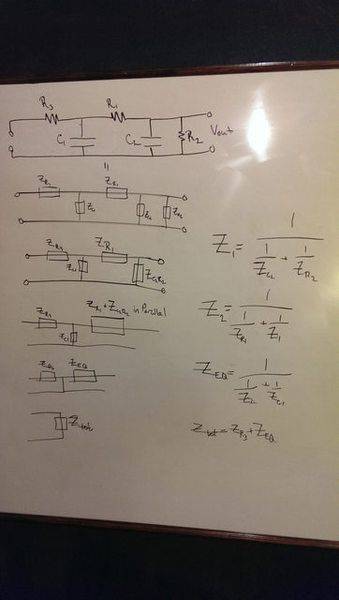 R3 R1
C1 C2 R2 Vout
=
ZR3 ZR1
ZC1 ZC2 ZR2
ZR3 ZR1
ZC1 ZC2R2
ZR3 ZR1 + ZC2R2 in Parallel
ZC1
ZR3 ZEQ
Ztot
Z1 = 1 / (1/ZC2 + 1/ZR2)
Z2 = 1 / (1/ZR1 + 1/Z1)
ZEQ = 1 / (1/Z2 + 1/ZC1)
Ztot = ZR3 + ZEQ